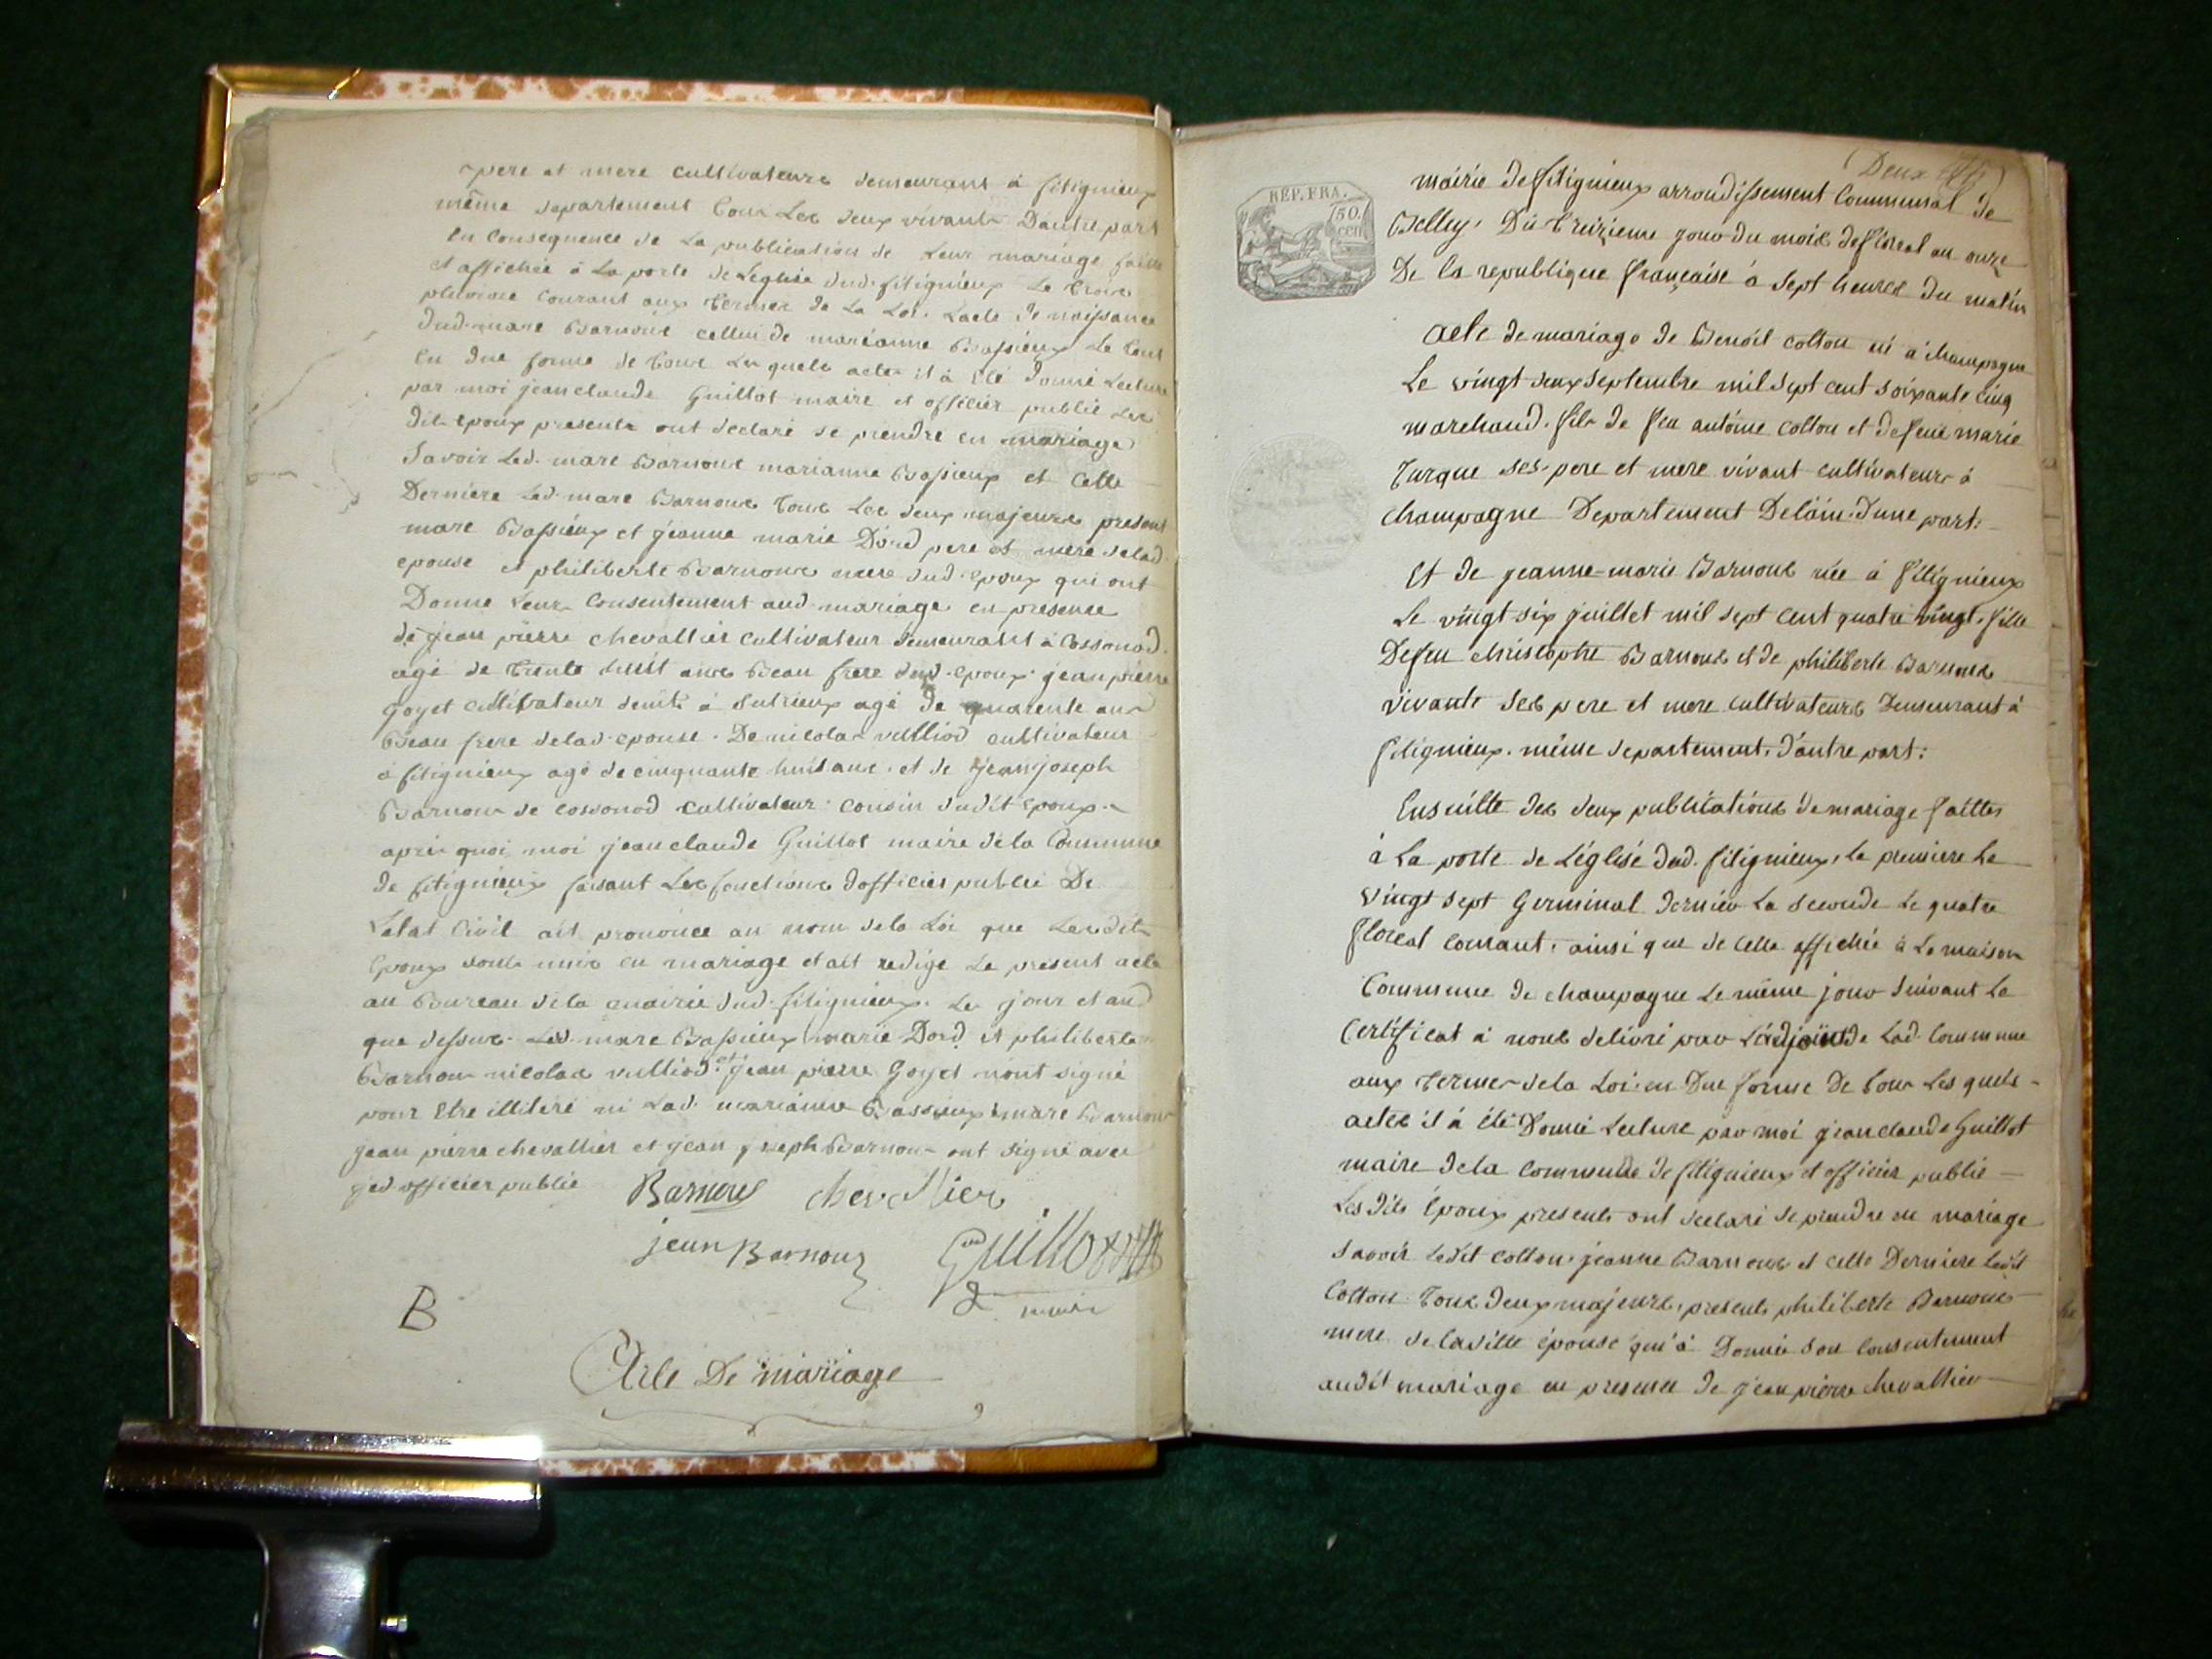 pere et mere cultivateurs demeurant à fitignieux
même departement tous Les deux vivants Dautre part
En Consequence de La publication de Leur mariage faitte
et affichée à La porte de Leglise dud. fitignieux Le trois
pluviose Courant aux termes de La Loi. Lacte de naissance
dud. marc Barnoux cellui de marianne Bassieux Le tout
En due forme de tous Lesquels actes il à été donné Lecture
par moi jean claude Guillot maire et officier public Les
dits epoux presents ont declaré se prendre en mariage
Savoir Led. marc Barnoux marianne Bassieux et Cette
Derniere Led. marc Barnoux tous Les deux majeurs present
marc Bassieux et jeanne marie Dord pere et mere de lad.
epouse et philiberte Barnoux mere dud. epoux qui ont
Donné Leur Consentement aud. mariage en presence
de jean pierre chevallier cultivateur demeurant à Cossonod.
agé de trente huit ans Beau frere dud. epoux. jean pierre
goyet cultivateur demt. à Sutrieux agé de quarente ans
Beau frere de lad. epouse. De nicolas vulliod cultivateur
à fitignieux agé de cinquante huit ans. et de jean joseph
Barnoux de cossonod cultivateur cousin dudit epoux.
après quoi, moi jean claude Guillot maire de la Commune
de fitignieux faisant Les fonctions dofficier public De
Letat Civil ait prononcé au nom de la Loi que Lesdits
Epoux sont unis en mariage et ait redigé Le present acte
au Bureau de la mairie dud. fitignieux. Les jour et an
que dessus. Led. marc Bassieux marie Dord et philiberte
Barnoux nicolas vulliod et jean pierre Goyet n'ont signé
pour Etre illiteré ni Lad. marianne Bassieux marc Barnoux
jean pierre chevallier et jean joseph Barnoux ont signé avec
officier public
Barnoux chevallier
jean Barnoux Guillot
maire
B
Acte De mariage
(Deux
REP. FRA.
50.
cen.
mairie de fitignieux arrondissement Communal de
Belley. Du treizieme jour du mois defloreal an onze
De la republique française à Sept heures du matin
acte de mariage de Benoit cotton né à champagne
Le vingt deux septembre mil sept cent soixante cinq
marchand. fils de feu antoine cotton et de feue marie
Turque ses pere et mere vivant cultivateurs à
champagne Departement De lain. Dune part.
Et de jeanne-marie Barnoux née à fitignieux
Le vingt six juillet mil sept cent quatre vingt. fille
De feu christophe Barnoux et de philiberte Barnoux
vivante ses pere et mere cultivateurs demeurant à
fitignieux. même departement. d'autre part:
Ensuitte des deux publications de mariage faittes
à La porte de L'église dud. fitignieux, la premiere Le
vingt sept Germinal dernier La seconde Le quatre
floreal courant. ainsi que de celle affichée à La maison
Commune de champagne Le même jour suivant Le
Certificat à nous delivré par L'adjoint de Lad. Commune
aux termes de la Loi en Due forme De tous Les quels
actes il à été Donné Lecture par moi jean claude Guillot
maire de la Commune de fitignieux et officier public
Les dits Epoux presents ont declaré se prendre en mariage
Savoir Ledit cotton. jeanne Barnoux et cette Derniere Ledit
Cotton. tous deux majeurs, presente philiberte Barnoux
mere de laditte épouse qui à Donné son Consentement
audit mariage en presence de jean pierre chevallier